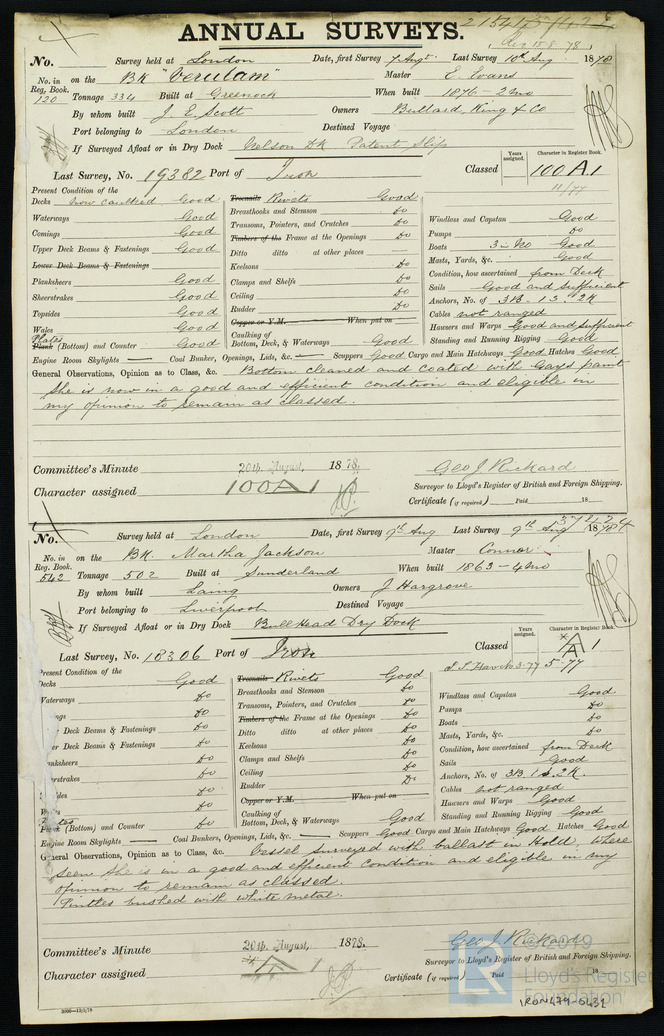 ANNUAL SURVEYS.
No. Survey held at London Date, first Survey 7 Augt Last Survey 10th Aug 1878
No. in Reg. Book. on the BK "Verulam" Master E. Evans
120 Tonnage 334 Built at Greenock When built 1876 - 2mo
By whom built J. E. Scott Owners Bullard, King & Co
Port belonging to London Destined Voyage
If Surveyed Afloat or in Dry Dock Nelson Dk Patent Slip
Last Survey, No. 19382 Port of Iron Classed Years assigned. Character in Register Book. 100A1
11/77
Present Condition of the
Decks now caulked Good
Waterways Good
Comings Good
Upper Deck Beams & Fastenings Good
Lower Deck Beams & Fastenings
Planksheers Good
Sheerstrakes Good
Topsides Good
Wales Good
Plates
Plank (Bottom) and Counter Good
Treenails Rivets Good
Breasthooks and Stemson do
Transoms, Pointers, and Crutches do
Timbers of the Frame at the Openings do
Ditto ditto at other places
Keelsons do
Clamps and Shelfs do
Ceiling do
Rudder do
Copper or Y.M. When put on
Caulking of
Bottom, Deck, & Waterways Good
Windlass and Capstan Good
Pumps do
Boats 3 in No Good
Masts, Yards, &c. Good
Condition, how ascertained from Deck
Sails Good and Sufficient
Anchors, No. of 3B. 1S. 2K
Cables not ranged
Hawsers and Warps Good and Sufficient
Standing and Running Rigging Good
Engine Room Skylights Coal Bunker, Openings, Lids, &c. Scuppers Good Cargo and Main Hatchways Good Hatches Good
General Observations, Opinion as to Class, &c. Bottom cleaned and coated with Gays paint
She is now in a good and efficient condition and eligible in
my opinion to remain as classed.
Committee's Minute 20th August, 1878. Geo J. Rickard
Surveyor to Lloyd's Register of British and Foreign Shipping.
Character assigned 100A1 Certificate (if required) Paid 18
No. Survey held at London Date, first Survey 9th Aug Last Survey 9th Aug 1878
No. in Reg. Book. on the BK. Martha Jackson Master Connor
542 Tonnage 502 Built at Sunderland When built 1863 - 4mo
By whom built Laing Owners J Hargrove
Port belonging to Liverpool Destined Voyage
If Surveyed Afloat or in Dry Dock Bull Head Dry Dock
Last Survey, No. 18306 Port of Iron Classed Years assigned. Character in Register Book. A1
5-77
Present Condition of the
Decks Good
Waterways do
ngs do
er Deck Beams & Fastenings do
er Deck Beams & Fastenings do
anksheers do
erstrakes do
ides do
Wales do
Plates
Plank (Bottom) and Counter do
Treenails Rivets Good
Breasthooks and Stemson do
Transoms, Pointers, and Crutches do
Timbers of the Frame at the Openings do
Ditto ditto at other places do
Keelsons do
Clamps and Shelfs do
Ceiling do
Rudder do
Copper or Y.M. When put on
Caulking of
Bottom, Deck, & Waterways Good
Windlass and Capstan Good
Pumps do
Boats do
Masts, Yards, &c. do
Condition, how ascertained from Deck
Sails Good
Anchors, No. of 3B. 1S. 2K.
Cables not ranged
Hawsers and Warps Good
Standing and Running Rigging Good
Engine Room Skylights Coal Bunkers, Openings, Lids, &c. Scuppers Good Cargo and Main Hatchways Good Hatches Good
General Observations, Opinion as to Class, &c. Vessel surveyed with ballast in Hold. Where
seen she is in a good and efficient condition and eligible in my
opinion to remain as classed.
Pintles bushed with white metal.
Committee's Minute 20th August, 1878. Geo J. Rickard
Surveyor to Lloyd's Register of British and Foreign Shipping.
Character assigned A1 Certificate (if required) Paid 18
© 2019
Lloyd's Register
Foundation
IRON479-0431